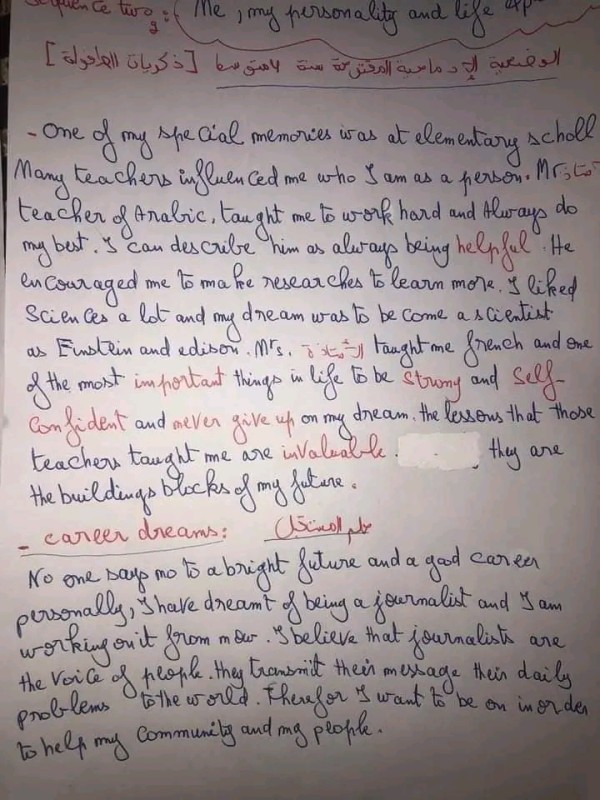 Sequence two : Me, my personality and life exp
الوضعية الإدماجية المقترحة سنة 4 متوسط [ذكريات الطفولة]
- One of my special memories was at elementary scholl
Many teachers influenced me who I am as a person. Mr
teacher of Arabic, taught me to work hard and Always do
my best. I can describe him as always being helpful. He
encouraged me to make researches to learn more. I liked
Sciences a lot and my dream was to become a scientist
as Einstein and edison. Mrs. الأستاذة taught me french and one
of the most important things in life to be strong and self-
confident and never give up on my dream. the lessons that those
teachers taught me are invaluable. they are
the buildings blocks of my future.
- career dreams: حلم المستقبل
No one says no to a bright future and a good career
personally, I have dreamt of being a journalist and I am
working on it from now. I believe that journalists are
the voice of people. they transmit their message their daily
problems to the world. Therefor I want to be on in order
to help my community and my people.